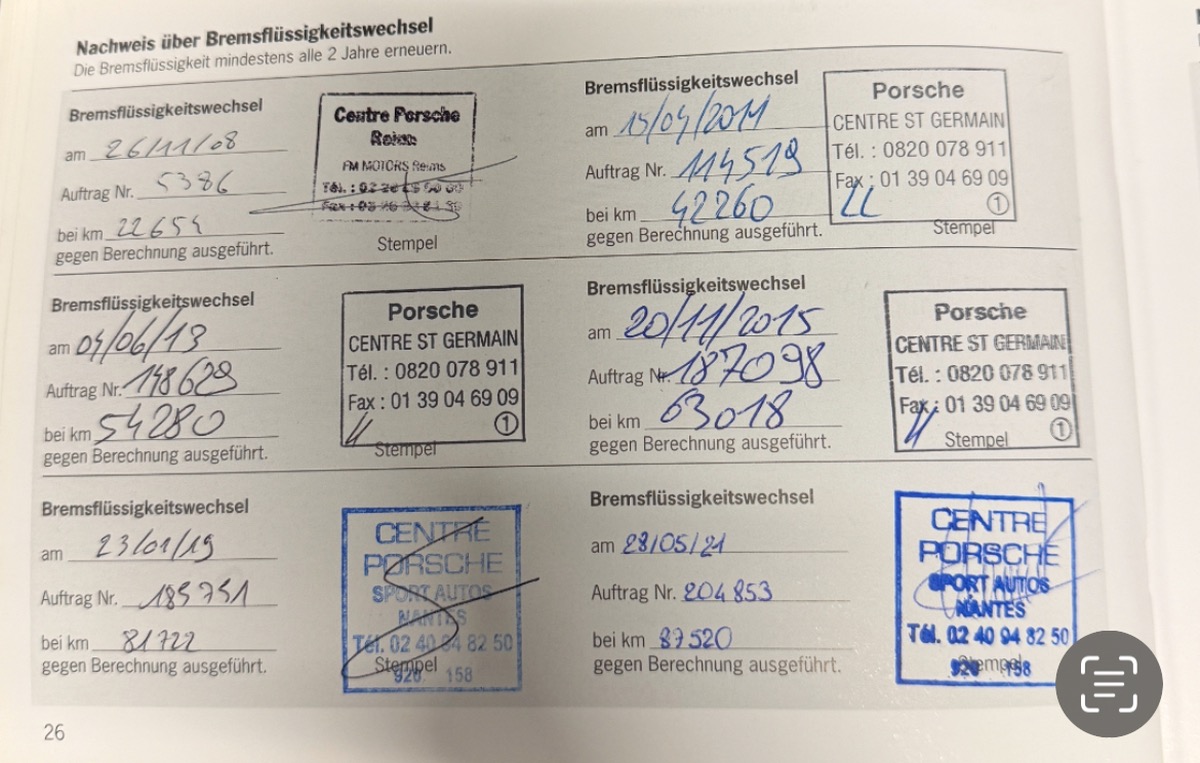 Nachweis über Bremsflüssigkeitswechsel
Die Bremsflüssigkeit mindestens alle 2 Jahre erneuern.
Bremsflüssigkeitswechsel
am 26/11/08
Auftrag Nr. 5386
bei km 22654
gegen Berechnung ausgeführt.
Centre Porsche
Reims
FM MOTORS Reims
Tél. :
Fax :
Stempel
Bremsflüssigkeitswechsel
am 15/04/2011
Auftrag Nr. 114519
bei km 42260
gegen Berechnung ausgeführt.
Porsche
CENTRE ST GERMAIN
Tél. : 0820 078 911
Fax : 01 39 04 69 09
1
Stempel
Bremsflüssigkeitswechsel
am 04/06/13
Auftrag Nr. 148629
bei km 54280
gegen Berechnung ausgeführt.
Porsche
CENTRE ST GERMAIN
Tél. : 0820 078 911
Fax : 01 39 04 69 09
1
Stempel
Bremsflüssigkeitswechsel
am 20/11/2015
Auftrag Nr. 187098
bei km 63018
gegen Berechnung ausgeführt.
Porsche
CENTRE ST GERMAIN
Tél. : 0820 078 911
Fax : 01 39 04 69 09
1
Stempel
Bremsflüssigkeitswechsel
am 23/01/19
Auftrag Nr. 185751
bei km 81722
gegen Berechnung ausgeführt.
CENTRE
PORSCHE
SPORT AUTOS
NANTES
Tél. 02 40 94 82 50
Stempel
920 158
Bremsflüssigkeitswechsel
am 28/05/21
Auftrag Nr. 204853
bei km 87520
gegen Berechnung ausgeführt.
CENTRE
PORSCHE
SPORT AUTOS
NANTES
Tél. 02 40 94 82 50
Stempel
920 158
26